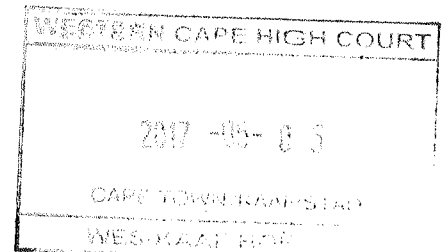 WESTERN CAPE HIGH COURT
2017 -05- 0 5
CAPE TOWN/KAAPSTAD
WES-KAAP HOF